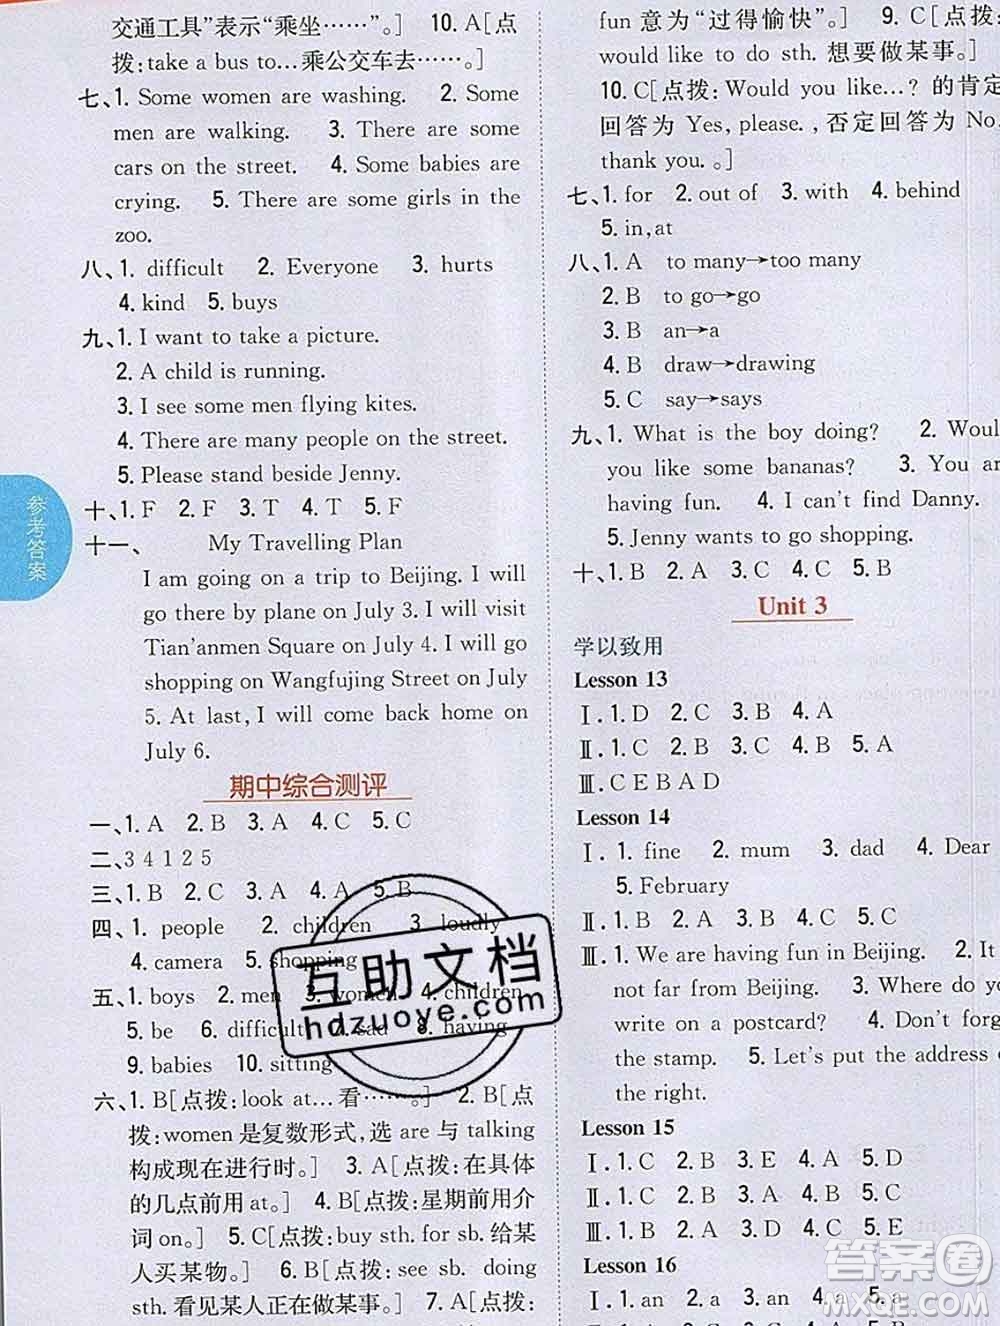 交通工具”表示“乘坐……”。] 10. A[点
拨:take a bus to…乘公交车去……。]
七、1. Some women are washing. 2. Some
men are walking. 3. There are some
cars on the street. 4. Some babies are
crying. 5. There are some girls in the
zoo.
八、1. difficult 2. Everyone 3. hurts
4. kind 5. buys
九、1. I want to take a picture.
2. A child is running.
3. I see some men flying kites.
4. There are many people on the street.
5. Please stand beside Jenny.
十、1. F 2. F 3. T 4. T 5. F
十一、 My Travelling Plan
I am going on a trip to Beijing. I will
go there by plane on July 3. I will visit
Tian'anmen Square on July 4. I will go
shopping on Wangfujing Street on July
5. At last, I will come back home on
July 6.
期中综合测评
一、1. A 2. B 3. A 4. C 5. C
二、3 4 1 2 5
三、1. B 2. C 3. A 4. A 5. B
四、1. people 2. children 3. loudly
4. camera 5. shopping
五、1. boys 2. men 3. women 4. children
5. be 6. difficult 7. sad 8. having
9. babies 10. sitting
六、1. B[点拨:look at…看……。] 2. B[点
拨:women是复数形式,选are与talking
构成现在进行时。] 3. A[点拨:在具体
的几点前用at。] 4. B[点拨:星期前用介
词on。] 5. C[点拨:buy sth. for sb.给某
人买某物。] 6. B[点拨:see sb. doing
sth.看见某人正在做某事。] 7. A[点拨:
fun 意为“过得愉快”。] 9. C[点拨:
would like to do sth. 想要做某事。]
10. C[点拨:Would you like…? 的肯定
回答为 Yes, please. ,否定回答为 No,
thank you. 。]
七、1. for 2. out of 3. with 4. behind
5. in,at
八、1. A to many→too many
2. B to go→go
3. B an→a
4. B draw→drawing
5. C say→says
九、1. What is the boy doing? 2. Would
you like some bananas? 3. You are
having fun. 4. I can't find Danny.
5. Jenny wants to go shopping.
十、1. B 2. A 3. C 4. C 5. B
Unit 3
学以致用
Lesson 13
Ⅰ. 1. D 2. C 3. B 4. A
Ⅱ. 1. C 2. B 3. A 4. B 5. A
Ⅲ. C E B A D
Lesson 14
Ⅰ. 1. fine 2. mum 3. dad 4. Dear
5. February
Ⅱ. 1. C 2. B 3. A 4. C 5. B
Ⅲ. 1. We are having fun in Beijing. 2. It
not far from Beijing. 3. Where do you
write on a postcard? 4. Don't forg
the stamp. 5. Let's put the address o
the right.
Lesson 15
Ⅰ. 1. C 2. B 3. E 4. A 5. D
Ⅱ. 1. C 2. B 3. A 4. B 5. C
Ⅲ. 1. B 2. A 3. D 4. C 5. E
Lesson 16
Ⅰ. 1. an 2. a 3. an 4. a 5. a
参考答案
互助文档
hdzuoye.com
答案圈
MXQE.COM